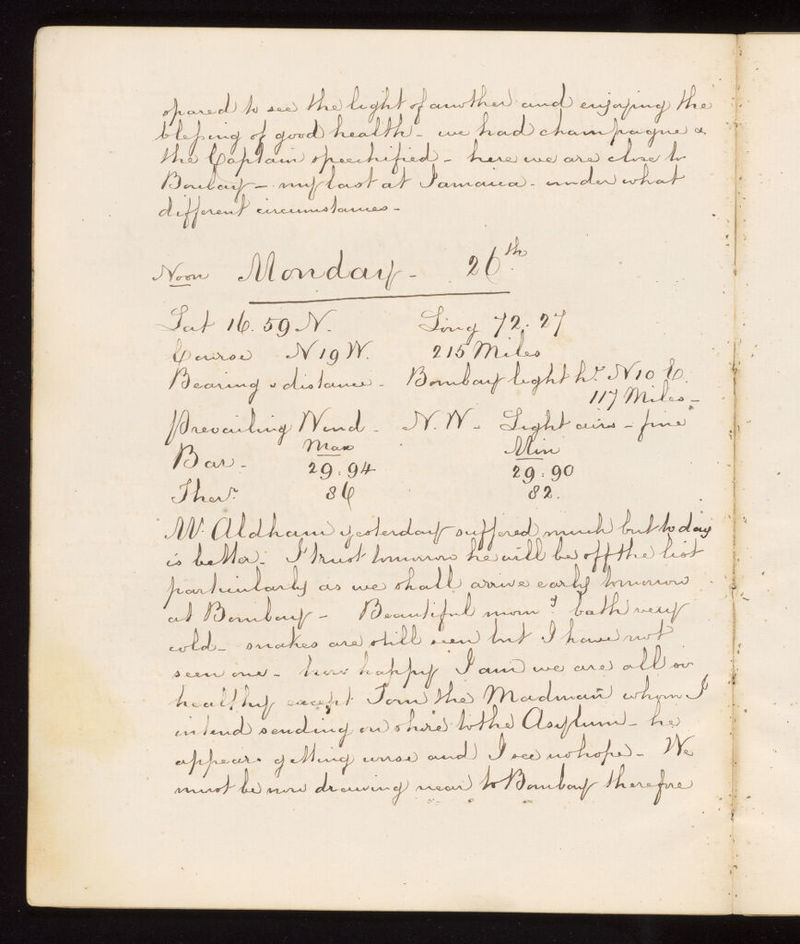 spared to see the light of another and enjoying the
blessing of good health - we had champagne &
the Captain speechified - here we are close to
Bombay - my last at Jamaica - under what
different circumstances -
Noon Monday - 26th
Lat 16.59 N. Long 72.27
Course N 19 W. 215 Miles
Bearing & distance - Bombay light hs. N 10 E.
117 Miles -
Prevailing Wind - N.W. - Light airs - fine
Max Min
Bar - 29.94 29.90
Ther. 86 82.
Mr. Aldham yesterday suffered much but to day
is better. I trust tomorrow he will be off the list
particularly as we shall arrive early tomorrow
at Bombay - Beautiful morng bath very
cold - snakes are still seen but I have not
seen one - how happy I am we are all so
healthy except Tom the Madman whom I
intend sending on shore to the Asylum - he
appears getting worse and I see no hope - We
must be now drawing near to Bombay therefore